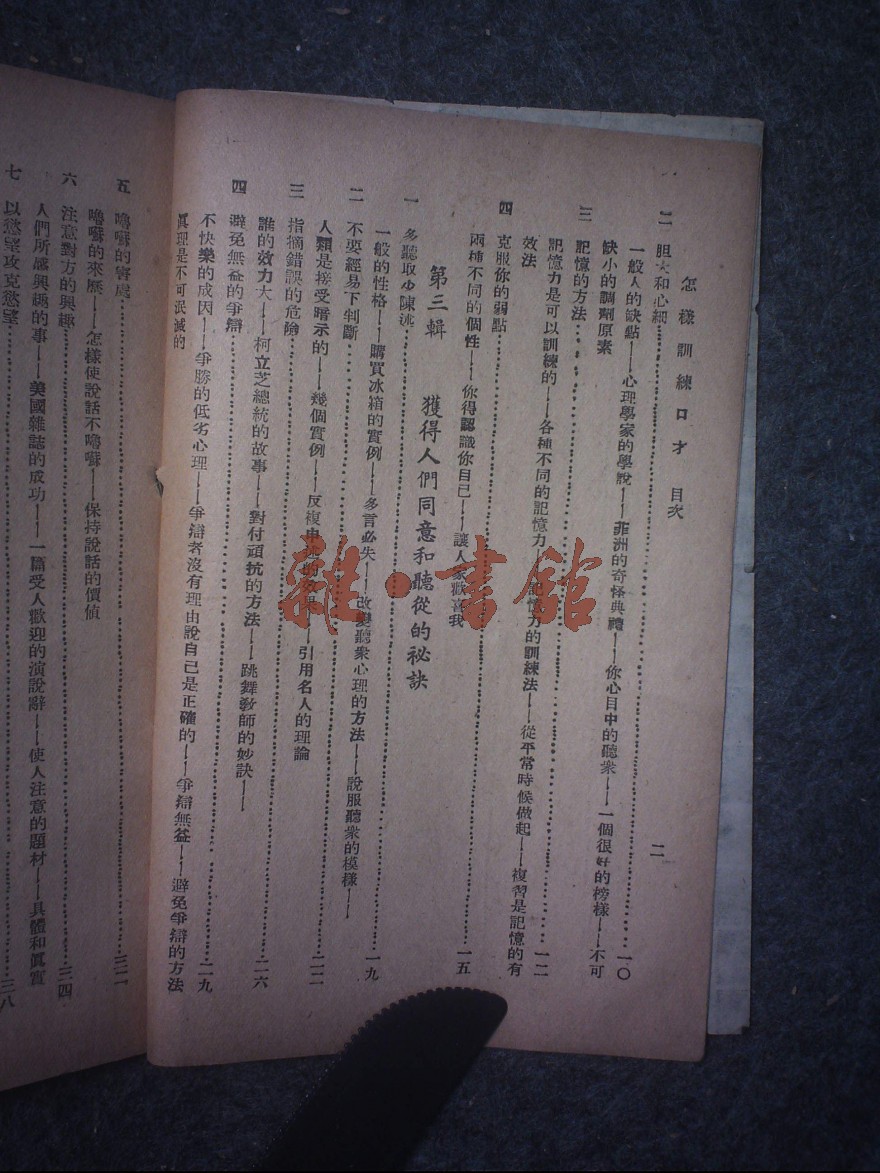 怎樣訓練口才 目次
二
二 胆大和心細……一〇
一般人的缺點——心理學家的學說——非洲的奇怪典禮——你心目中的聽衆——一個很好的榜樣——不可
缺小的調劑原素
三 記憶的方法……一二
記憶力是可以訓練的——各種不同的記憶力——記憶力的訓練法——從平常時候做起——複習是記憶的有
效法
四 克服你的弱點……一五
兩種不同的個性——你得認識你自己——讓人家歡喜我
第三輯 獲得人們同意和聽從的祕訣
一 多聽取少陳述……一九
一般的性格——購買冰箱的實例——多言必失——改變聽衆心理的方法——說服聽衆的模樣——
二 不要經易下判斷……二二
人類是接受暗示的——幾個實例——反複申述的效果——引用名人的理論
三 指摘錯誤的危險……二六
誰的效力大——柯立芝總統的故事——對付頑抗的方法——跳舞敎師的妙訣——
四 避免無益的爭辯……二九
不快樂的成因——爭勝的低劣心理——爭辯者沒有理由說自己是正確的——爭辯無益——避免爭辯的方法
眞理是不可泯滅的
五 嚕囌的害處……三二
嚕囌的來歷——怎樣使說話不嚕囌——保持說話的價値
六 注意對方的興趣……三四
人們所感興趣的事——美國雜誌的成功——一篇受人歡迎的演說辭——使人注意的題材——具體和眞實
七 以慾望攻克慾望……三八
雜·書館